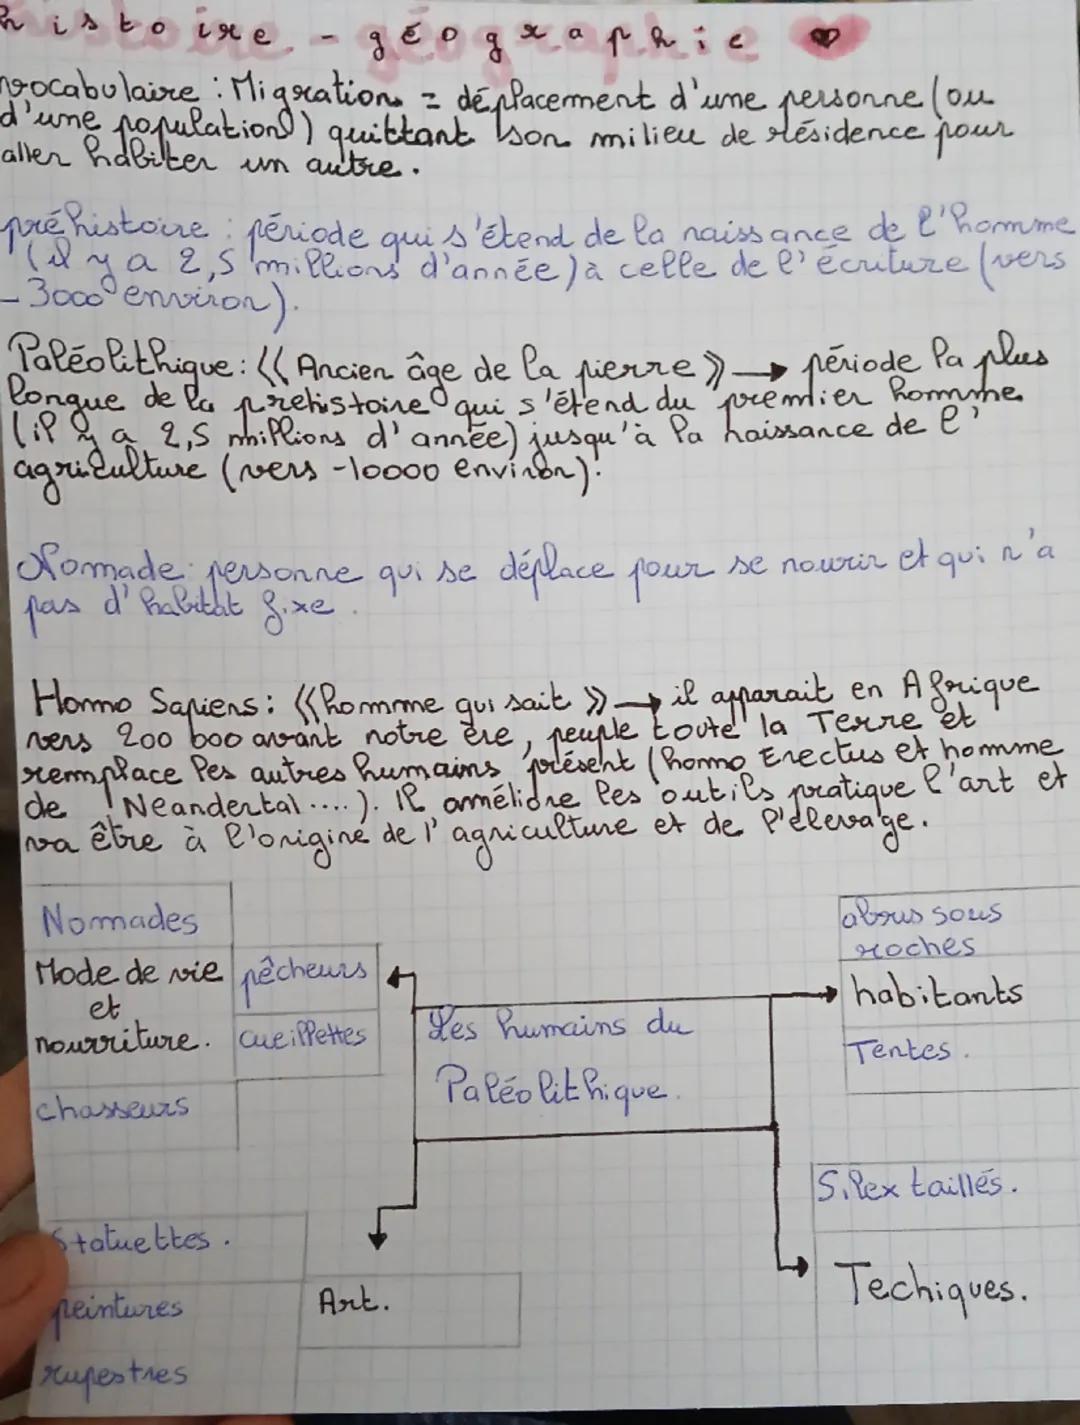 histoire - géographie
vocabulaire : Migration = déplacement d'une personne (ou
d'une population) quittant son milieu de résidence pour
aller habiter un autre.
préhistoire : période qui s'étend de la naissance de l'homme
(il y a 2,5 millions d'année) à celle de l'écriture (vers
-3000 environ).
Paléolithique : « Ancien âge de la pierre » → période la plus
longue de la prehistoire qui s'étend du premier homme
(il y a 2,5 millions d'année) jusqu'à la naissance de l'
agriculture (vers -10000 environ).
Nomade : personne qui se déplace pour se nourir et qui n'a
pas d'habitat fixe.
Homo Sapiens : « homme qui sait » → il apparait en Afrique
vers 200 000 avant notre ère, peuple toute la Terre et
remplace les autres humains présent (homo Erectus et homme
de Neandertal ....). Il améliore les outils pratique l'art et
va être à l'origine de l'agriculture et de l'élevage.
Nomades
Mode de vie
et
nourriture.
pêcheurs
cueillettes
chasseurs
Les humains du
Paléolithique.
abrus sous
roches
habitants
Tentes.
Silex taillés.
Techiques.
Statuettes.
peintures
rupestres
Art.